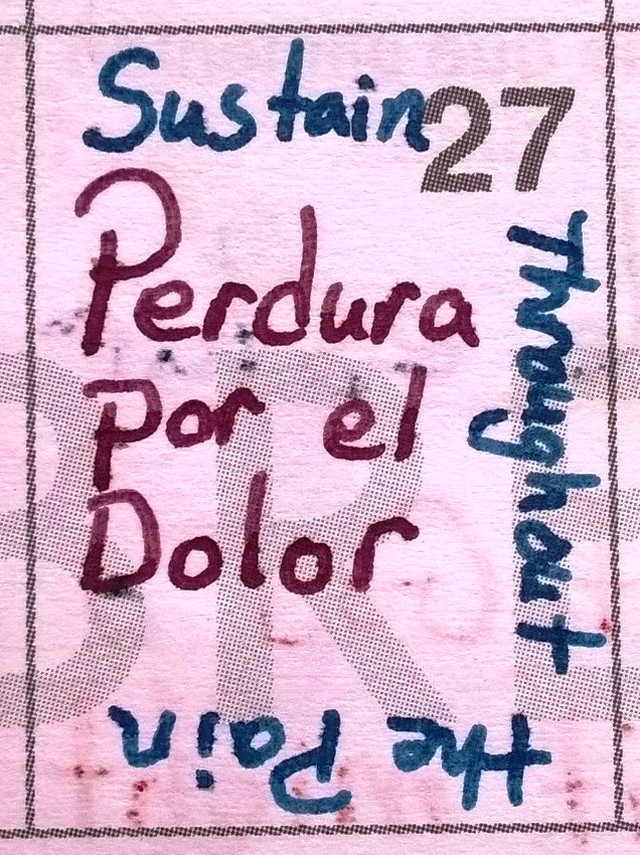 Sustain
27
Perdura
por el
Dolor
Throughout
the Pain